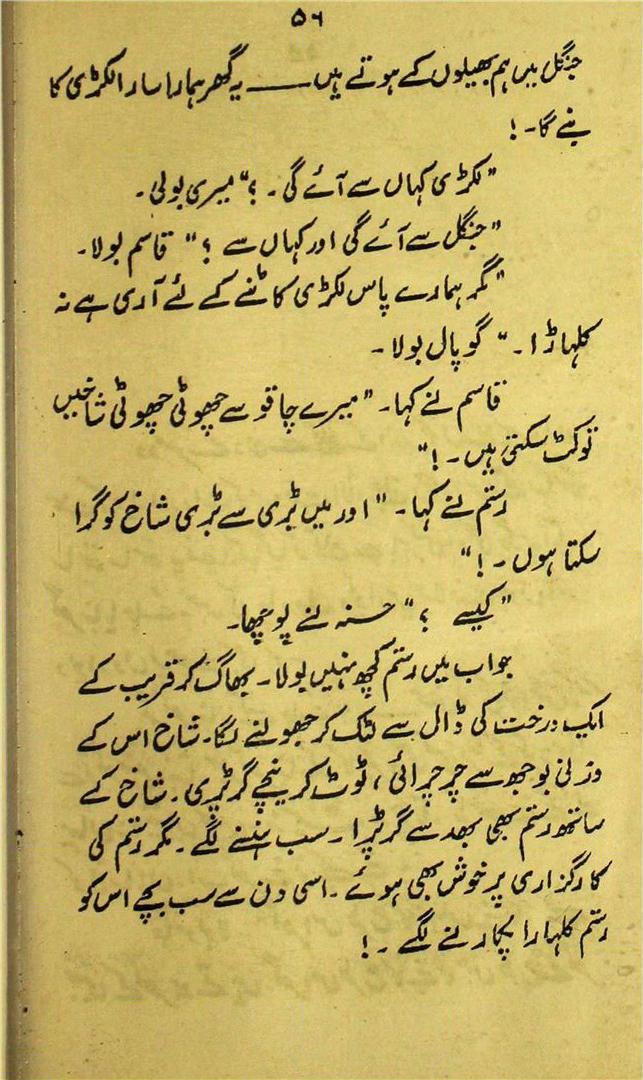 ۵۶
جنگل میں ہم بھیلوں کے ہوتے ہیں —— یہ گھر ہمارا سارا لکڑی کا
بنے گا۔!
"لکڑی کہاں سے آئے گی۔؟" میری بولی۔
"جنگل سے آئے گی اور کہاں سے ؟" قاسم بولا۔
"مگر ہمارے پاس لکڑی کاٹنے کے لئے آری ہے نہ
کلہاڑا۔" گوپال بولا۔
قاسم نے کہا۔ "میرے چاقو سے چھوٹی چھوٹی شاخیں
تو کٹ سکتی ہیں۔!"
رستم نے کہا۔ "اور میں بڑی سے بڑی شاخ کو گرا
سکتا ہوں۔!"
"کیسے ؟" حسنہ نے پوچھا۔
جواب میں رستم کچھ نہیں بولا۔ بھاگ کر قریب کے
ایک درخت کی ڈال سے لٹک کر جھولنے لگا۔ شاخ اس کے
وزنی بوجھ سے چرچرائی، ٹوٹ کر نیچے گر پڑی۔ شاخ کے
ساتھ رستم بھی بھد سے گر پڑا۔ سب ہنسنے لگے۔ مگر رستم کی
کارگزاری پر خوش بھی ہوئے۔ اسی دن سے سب بچے اس کو
رستم کلہارا پکارنے لگے۔!